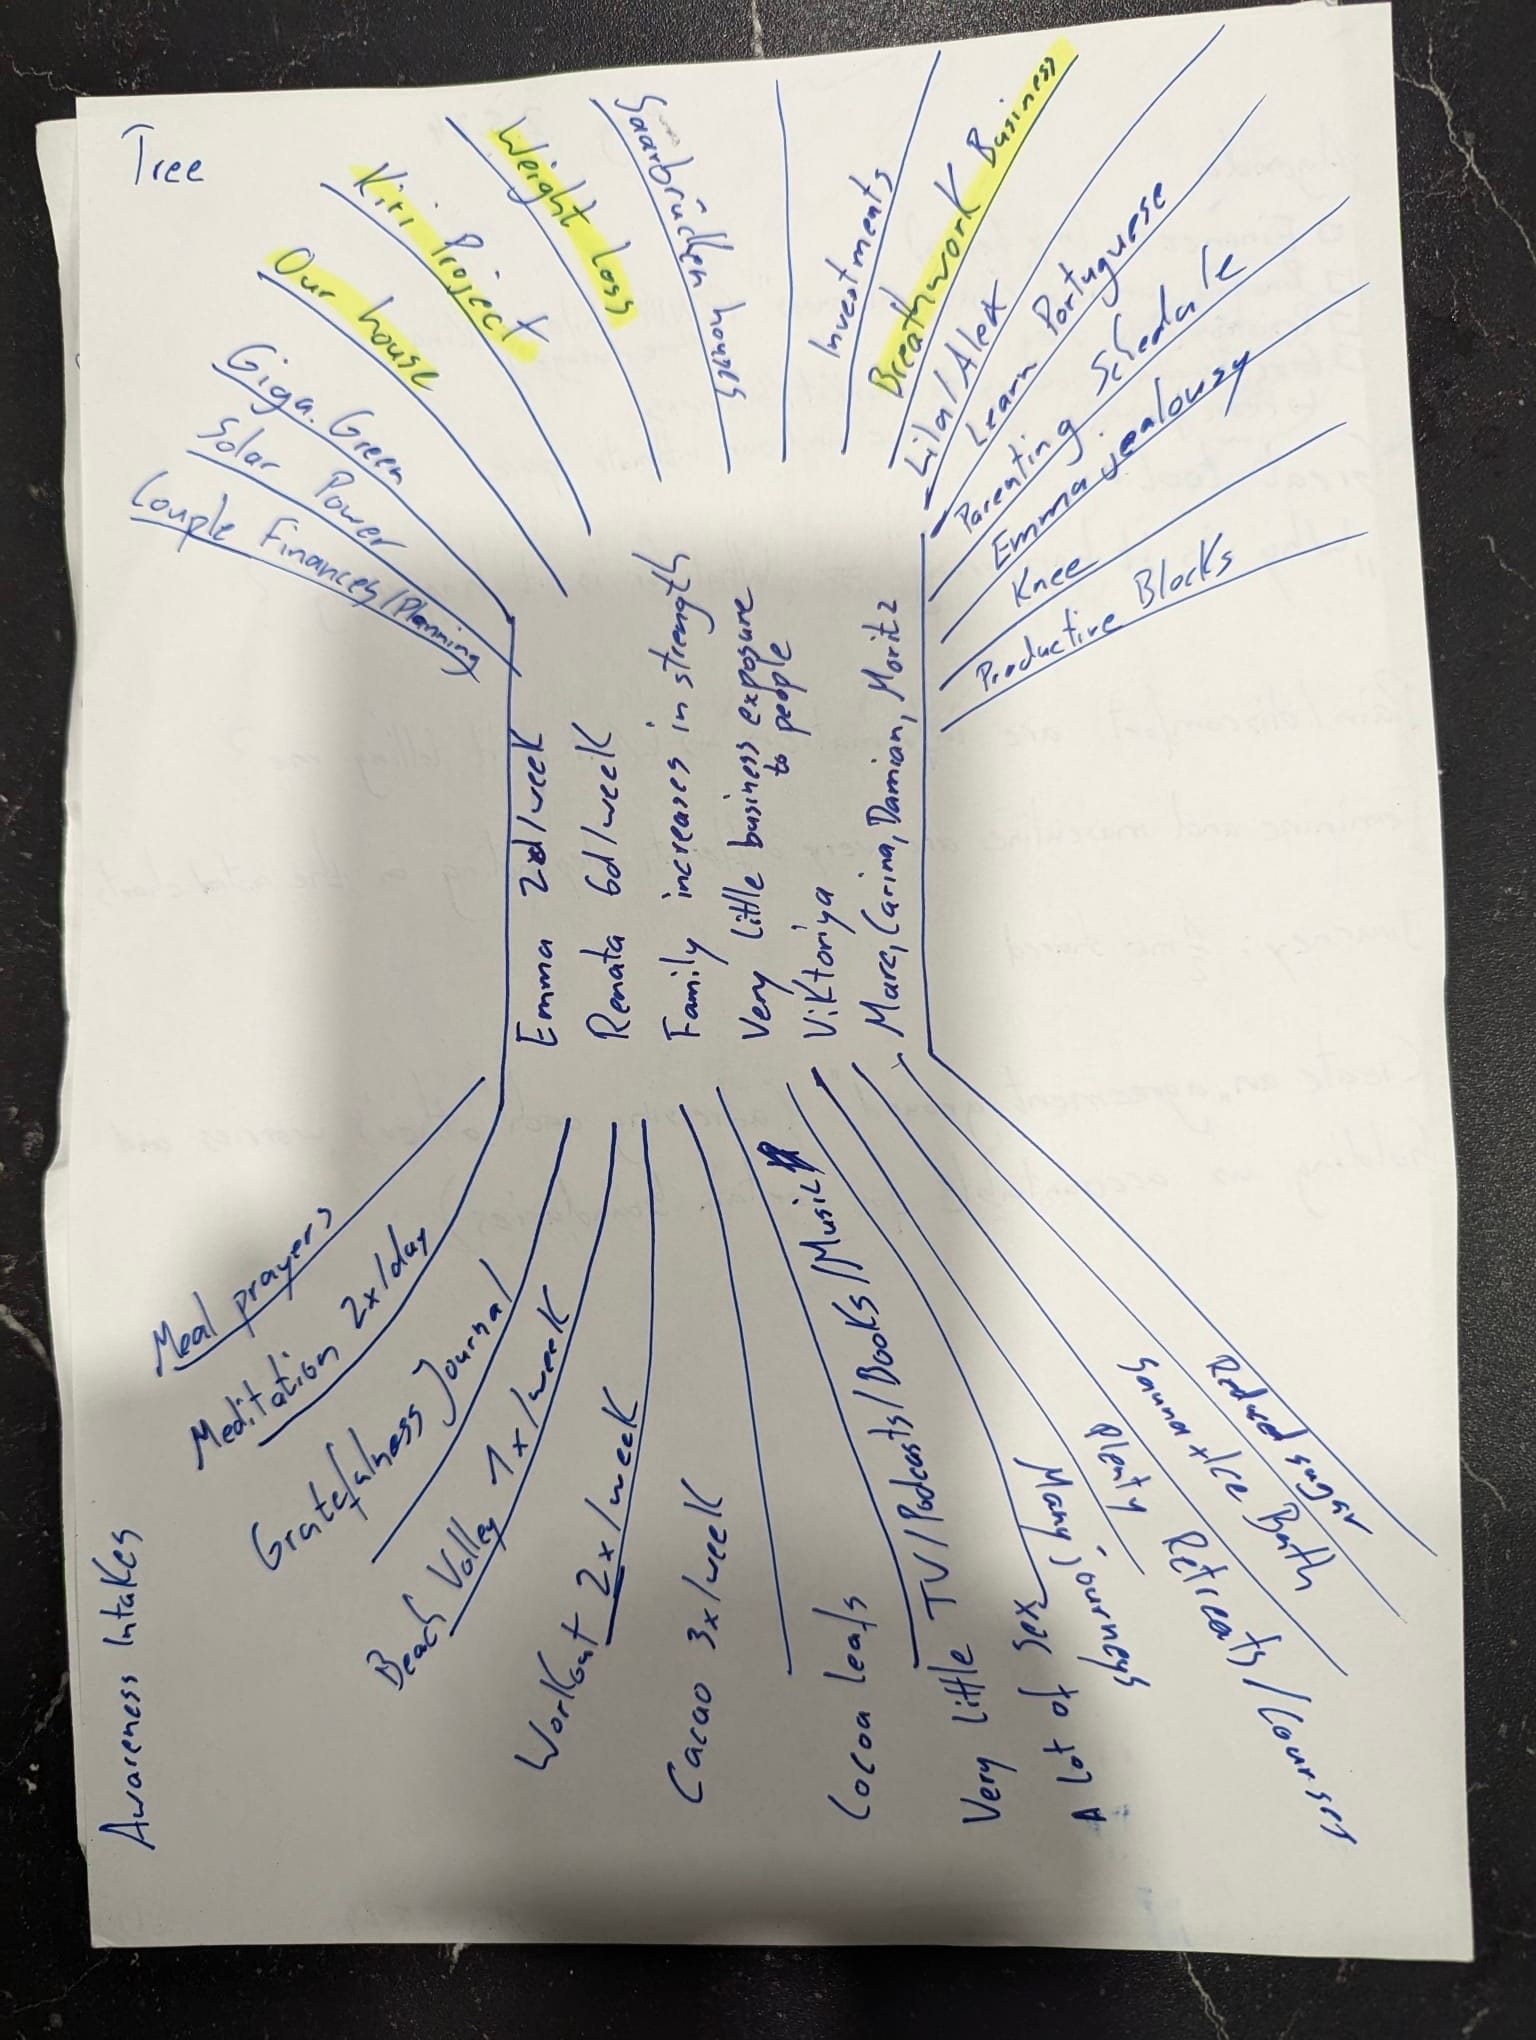 Tree
Couple Finances/Planning
Solar Power
Giga.Green
Our house
Kiri Project
Weight Loss
Saarbrücken house
Investments
Breathwork Business
Lila/Alex
Learn Portuguese
Parenting Schedule
Emma jealousy
Knee
Productive Blocks
Emma 2d/week
Renata 6d/week
Family increases in strength
Very little business exposure
to people
Viktoriya
Marc, Carina, Damian, Moritz
Awareness Intakes
Meal prayers
Meditation 2x/day
Gratefulness Journal
Beach Volley 1x/week
Workout 2x/week
Cacao 3x/week
Cocoa leafs
Very little TV/Podcasts/Books/Music
A lot of sex
Many journeys
Plenty Retreats/Courses
Sauna + Ice Bath
Reduced sugar